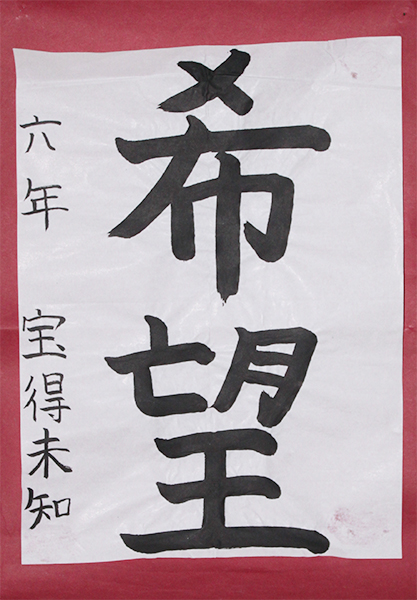 希望
六年 宝得未知